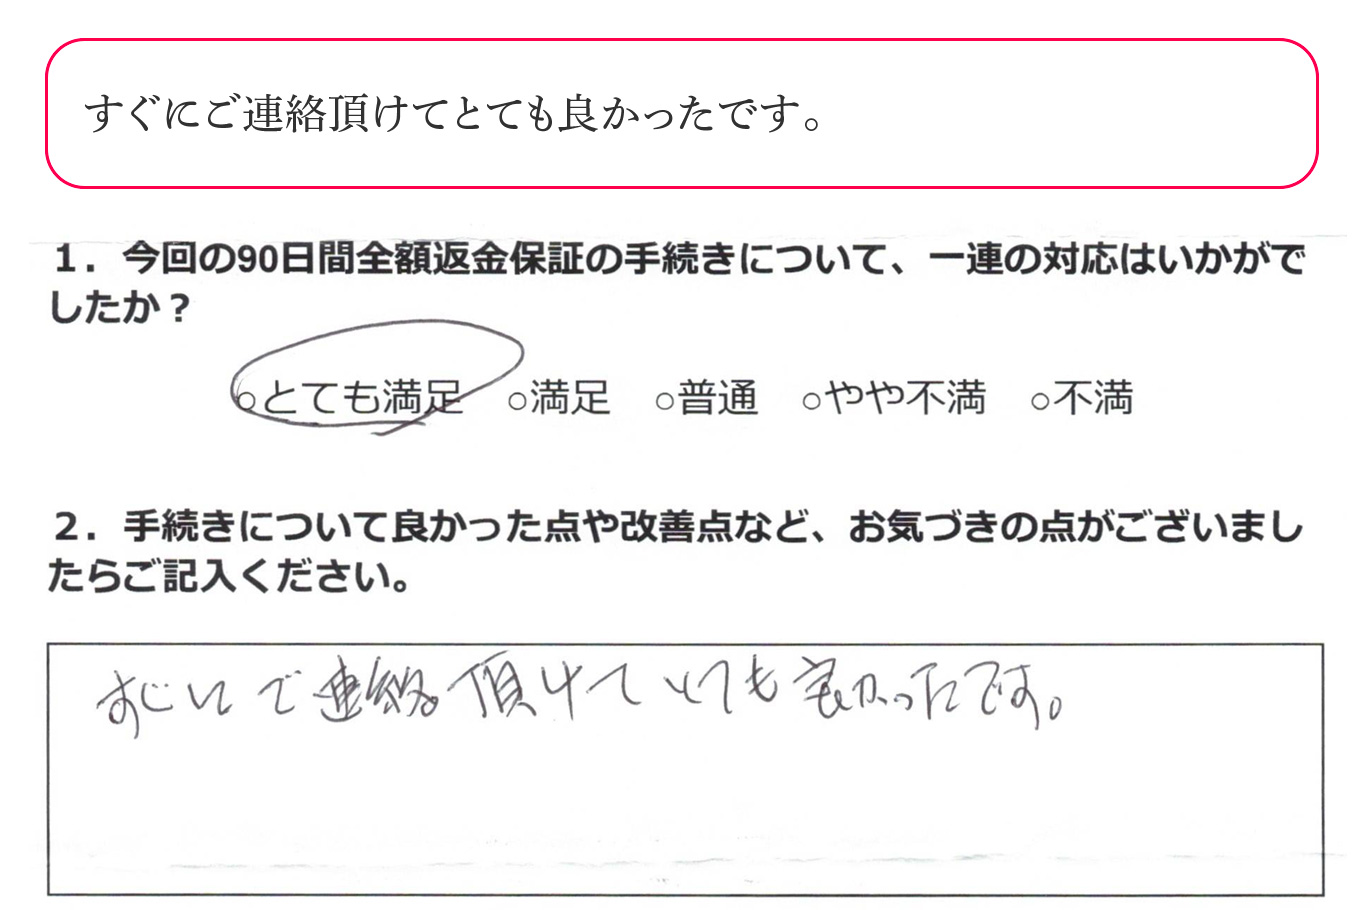 すぐにご連絡頂けてとても良かったです。
１．今回の90日間全額返金保証の手続きについて、一連の対応はいかがで
したか？
○とても満足 ○満足 ○普通 ○やや不満 ○不満
２．手続きについて良かった点や改善点など、お気づきの点がございまし
たらご記入ください。
すぐにご連絡頂けてとても良かったです。